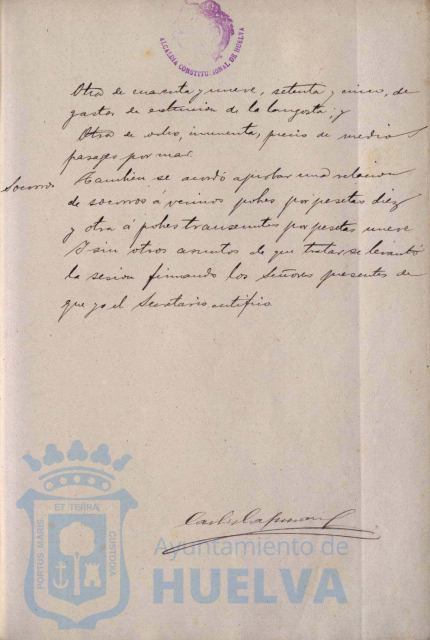 ALCALDIA CONSTITUCIONAL DE HUELVA
Otra de cuarenta y nueve, setenta y cinco, de
gastos de extincion de la langosta; y
Otra de ocho, cincuenta, precio de medio
pasage por mar.
Socorros También se acordó aprobar una relacion
de socorros á vecinos pobres por pesetas diez
y otra á pobres transeuntes por pesetas nueve
Y sin otros asuntos de que tratar se levantó
la sesion firmando los Señores presentes de
que yo el Secretario certifico
PORTUS MARIS ET TERRAE CUSTODIA
Ayuntamiento de
HUELVA